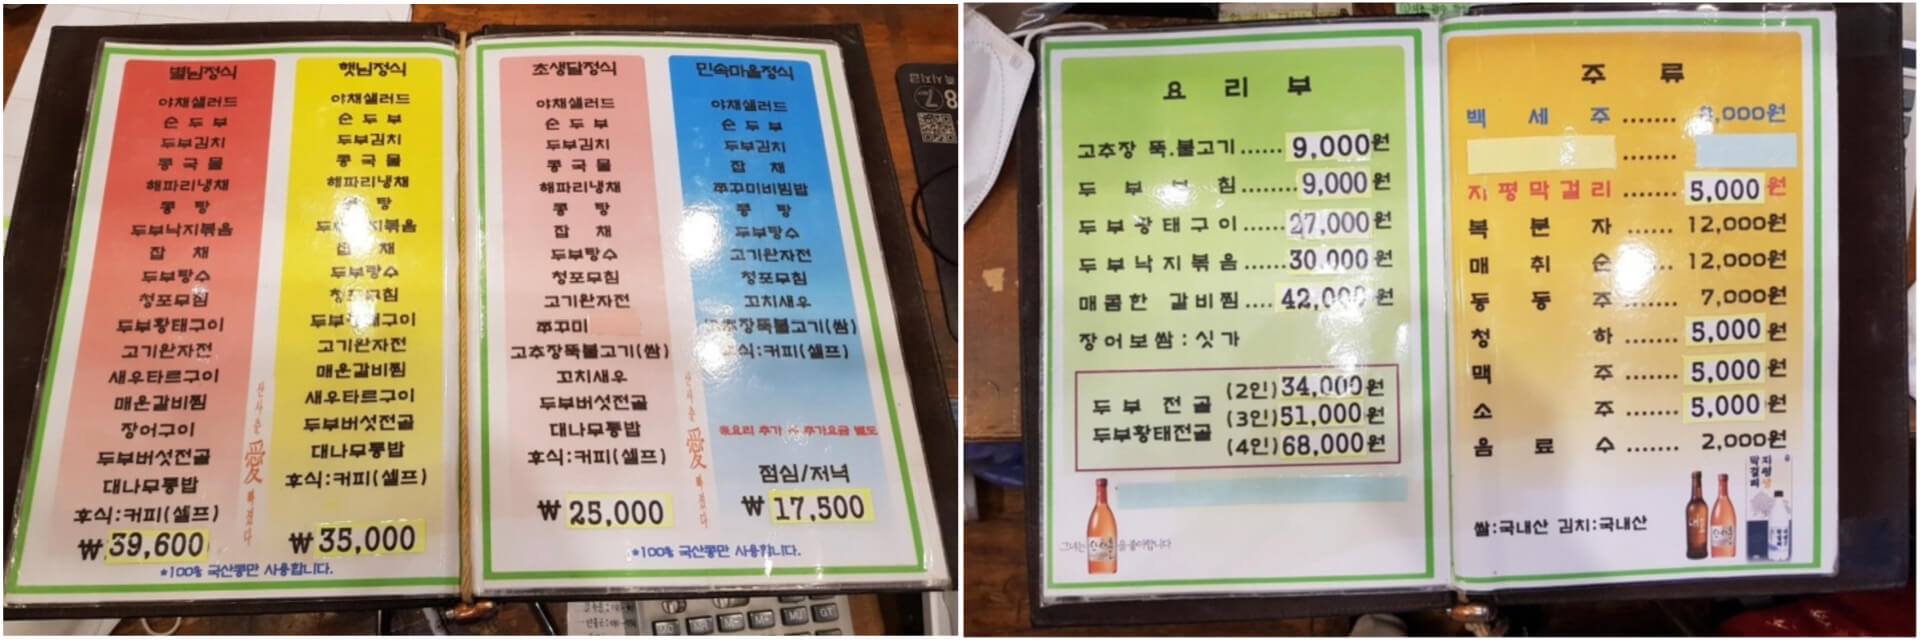 별님정식
야채샐러드
순두부
두부김치
콩국물
해파리냉채
콩탕
두부낙지볶음
잡채
두부탕수
청포무침
두부황태구이
고기완자전
새우타르구이
매운갈비찜
장어구이
두부버섯전골
대나무통밥
후식:커피(셀프)
₩39,600
햇님정식
야채샐러드
순두부
두부김치
콩국물
해파리냉채
탕
채
두부탕수
고기완자전
매운갈비찜
새우타르구이
두부버섯전골
대나무통밥
후식:커피(셀프)
₩35,000
산사춘
愛
빠졌다
*100% 국산콩만 사용합니다.
초생달정식
야채샐러드
순두부
두부김치
콩국물
해파리냉채
콩탕
잡채
두부탕수
청포무침
고기완자전
쭈꾸미
고추장뚝불고기(쌈)
꼬치새우
두부버섯전골
대나무통밥
후식:커피(셀프)
₩25,000
산사춘
愛
빠졌다
민속마을정식
야채샐러드
순두부
두부김치
잡채
쭈꾸미비빔밥
콩탕
두부탕수
고기완자전
청포무침
꼬치새우
고추장뚝불고기(쌈)
후식:커피(셀프)
※요리 추가 시 추가요금 별도
점심/저녁
₩17,500
*100% 국산콩만 사용합니다.
요리부
고추장 뚝.불고기...... 9,000원
두부부침........9,000원
두부황태구이......27,000원
두부낙지볶음......30,000원
매콤한 갈비찜.... 42,000원
장어보쌈:싯가
두부 전골
두부황태전골
(2인)34,000원
(3인)51,000원
(4인)68,000원
그녀는 산사춘을 좋아합니다
주류
백세주....... 8,000원
.......
지평막걸리....... 5,000원
복분자...... 12,000원
매취순...... 12,000원
동동주...... 7,000원
청하....... 5,000원
맥주....... 5,000원
소주....... 5,000원
음료수....... 2,000원
지평
막걸리
쌀:국내산 김치:국내산